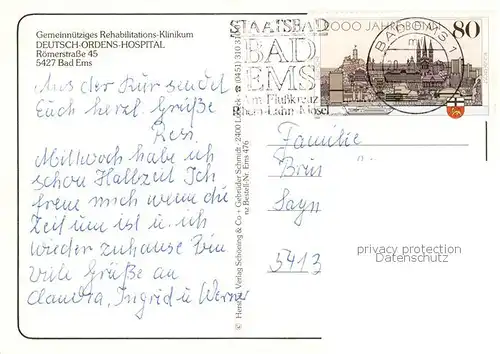 Gemeinnütziges Rehabilitations-Klinikum
DEUTSCH-ORDENS-HOSPITAL
Römerstraße 45
5427 Bad Ems
Aus der Kur sendet
Euch herzl. Grüße
Resi
Mittwoch habe ich
schon Halbzeit Ich
freue mich wenn die
Zeit um ist u. ich
wieder zuhause bin
Viele Grüße an
Claudia, Ingrid u Werner
© Herst. u. Verlag Schöning & Co + Gebrüder Schmidt, 2400 Lübeck ☎ (0451) 310 3
Bestell-Nr. Ems 476
STAATSBAD
BAD
EMS
Am Flußkreuz
Rhein-Lahn-Mosel
2000 JAHRE BONN
80
BAD EMS 1
Familie
Brün
Sayn
5413
privacy protection
Datenschutz